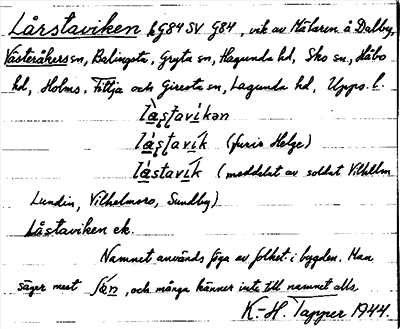 Lårstaviken hG84SV G84, vik av Mälaren å Dalby,
Västeråkers sn, Balingsta, Gryta sn, Hagunda hd, Sko sn, Håbo
hd, Holms, Fittja och Giresta sn, Lagunda hd, Upps. l.
låstavikən
låstavik (furir Helge)
låstavik (meddelat av soldat Vilhelm
Lundin, Vilhelmsro, Sundby)
Låstaviken ek.
Namnet används föga av folket i bygden. Man
säger mest , och många känner inte till namnet alls.
K-H. Tapper 1944.